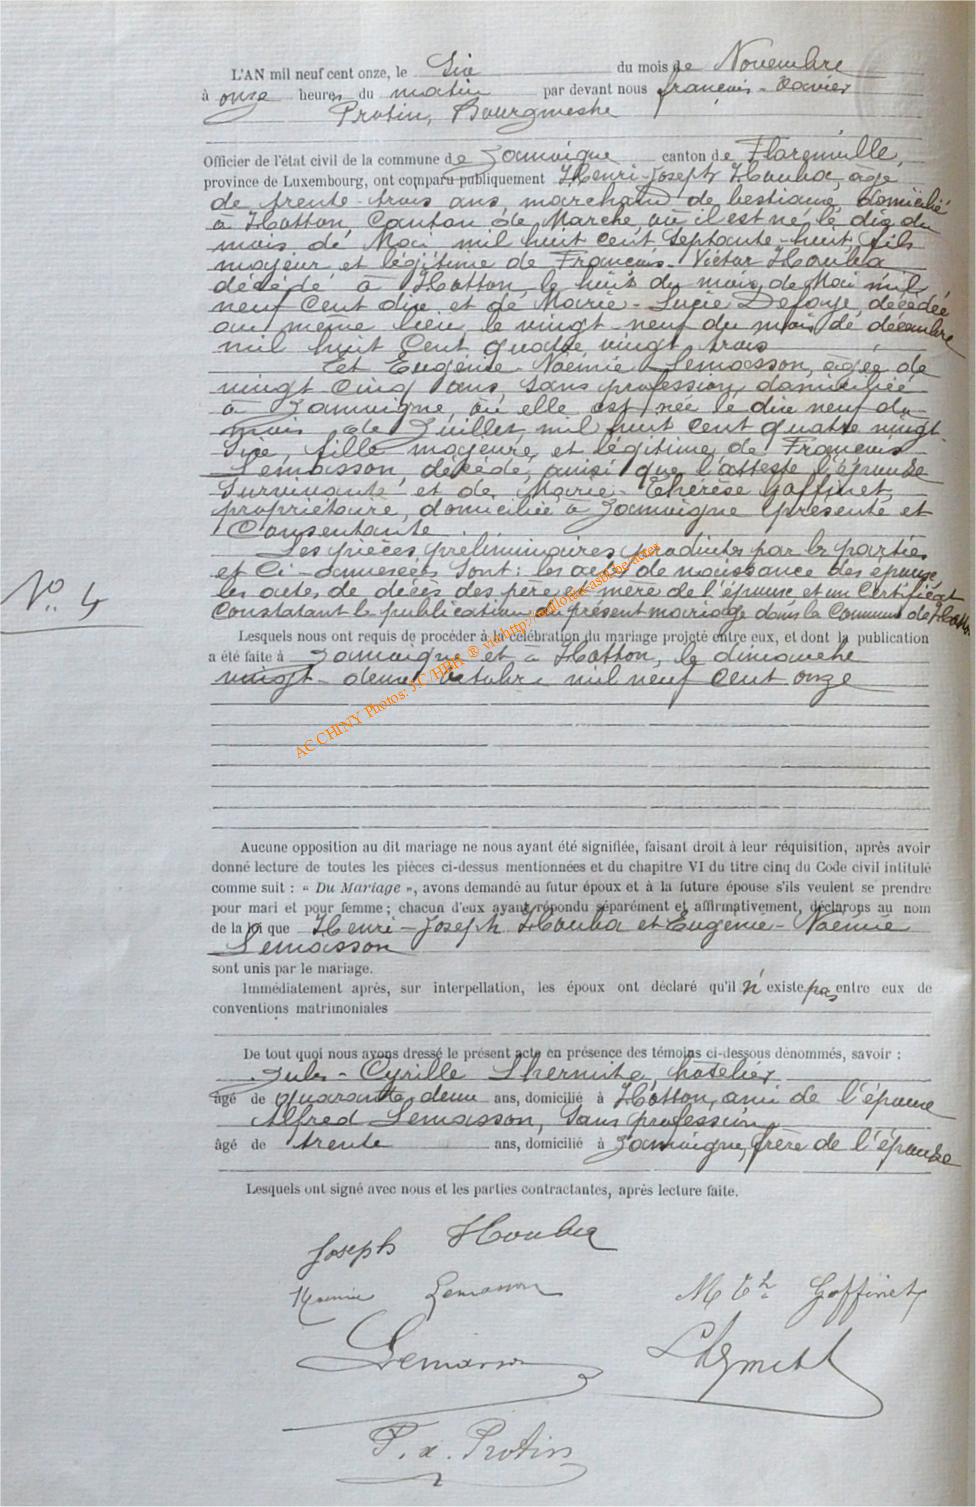 L'AN mil neuf cent onze, le Six du mois de Novembre
à onze heures du matin par devant nous françois-Xavier
Protin, Bourgmestre
Officier de l'état civil de la commune de Jamoigne canton de Florenville,
province de Luxembourg, ont comparu publiquement Henri-Joseph Houba, âgé
de trente-trois ans, marchand de bestiaux, domicilié
à Hotton, Canton de Marche, où il est né le dix du
mois de Mai mil huit cent septante-huit, fils
majeur et légitime de François-Victor Houba
décédé à Hotton le huit du mois de Mai mil
neuf cent dix et de Marie-Lucie Defoye, décédée
au même lieu le vingt-neuf du mois de décembre
mil huit cent quatre vingt trois
Et Eugénie-Noémie Lemasson, agée de
vingt cinq ans, sans profession, domiciliée
à Jamoigne, où elle est née le dix neuf du
mois de Juillet mil huit cent quatre vingt
six, fille majeure et légitime de François
Lemasson, décédé, ainsi que l'atteste l'épouse
survivante et de Marie-Thérèse Goffinet,
propriétaire, domiciliée à Jamoigne présente et
Consentante.
Les pièces préliminaires produites par les parties
et ci-annexées sont: les actes de naissance des époux,
les actes de décès des père et mère de l'époux et un Certificat
Constatant la publication du présent mariage dans la Commune de Hotton
N° 4
Lesquels nous ont requis de procéder à la célébration du mariage projeté entre eux, et dont la publication
a été faite à Jamoigne et à Hotton, le dimanche
vingt-deux octobre mil neuf cent onze
AC CHINY Photos: JC/HBH ® via http://wallonia-asbl.be-actes
Aucune opposition au dit mariage ne nous ayant été signifiée, faisant droit à leur réquisition, après avoir
donné lecture de toutes les pièces ci-dessus mentionnées et du chapitre VI du titre cinq du Code civil intitulé
comme suit : « Du Mariage », avons demandé au futur époux et à la future épouse s'ils veulent se prendre
pour mari et pour femme ; chacun d'eux ayant répondu séparément et affirmativement, déclarons au nom
de la loi que Henri-Joseph Houba et Eugénie-Noémie
Lemasson
sont unis par le mariage.
Immédiatement après, sur interpellation, les époux ont déclaré qu'il n'existe pas entre eux de
conventions matrimoniales
De tout quoi nous avons dressé le présent acte en présence des témoins ci-dessous dénommés, savoir :
Jules-Cyrille Lhermite, hôtelier
âgé de quarante deux ans, domicilié à Hotton, ami de l'époux
Alfred Lemasson, sans profession
âgé de trente ans, domicilié à Jamoigne, frère de l'épouse
Lesquels ont signé avec nous et les parties contractantes, après lecture faite.
Joseph Houba
Noémie Lemasson M Th Goffinet
Lemasson Lhermitte
F. X. Protin